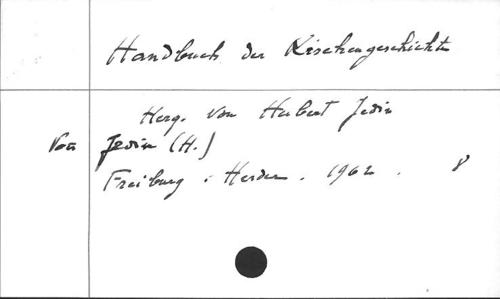 Handbuch der Kirchengeschichte
Herg. von Hubert Jedin
Von Jedin (H.)
Freiburg : Herder . 1962 . 8